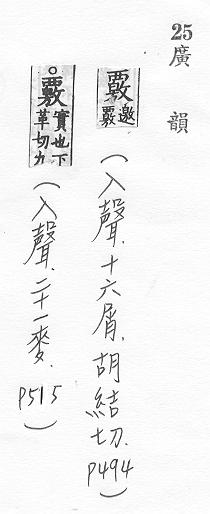 25 廣韻
覈 邀覈
(入聲.十六屑.胡結切.P494)
○覈 實也下革切
(入聲.二十一麥.P515)